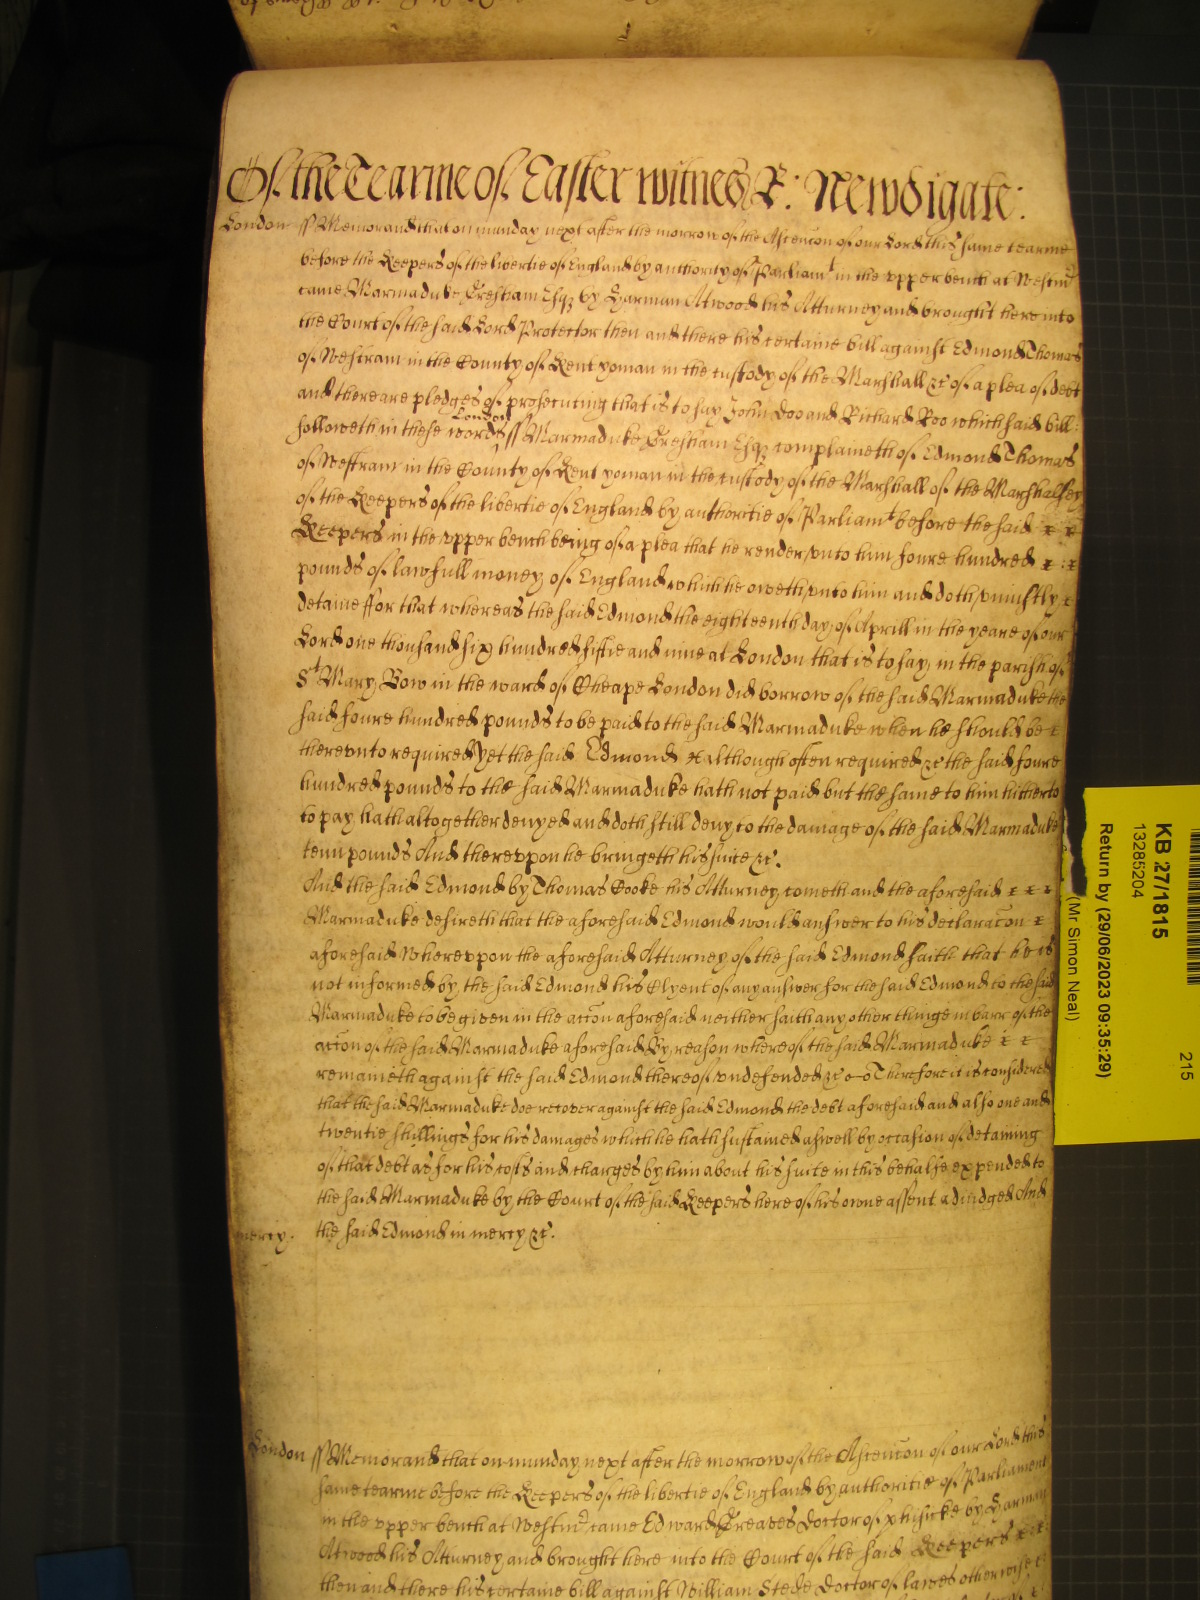 Of the Tearme of Easter witnes R: Newdigate:
London ss Memorand that on munday next after the morrow of the Ascencon of our Lord this same tearme
before the Keepers of the libertie of England by authority of Parliamt in the upper bench at Westmr
came Marmaduke Gresham Esqz by Harman Atwood his Atturney and brought here into
the Court of the said Lord Protector then and there his certaine bill against Edmond Thomas
of Westram in the County of Kent yoman in the custody of the Marshall &c of a plea of debt
and there are pledges of prosecuting that is to say John Doo and Richard Roo which said bill
followeth in these words London ss Marmaduke Gresham Esqz complaineth of Edmond Thomas
of Westram in the County of Kent yoman in the custody of the Marshall of the Marshalsey
of the Keepers of the libertie of England by authoritie of Parliamt before the said
Keepers in the upper bench being of a plea that he render unto him foure hundred
pounds of lawfull money of England which he oweth unto him and doth uniustly
detaine ffor that whereas the said Edmond the eighteenth day of Aprill in the yeare of our
Lord one thousand six hundred fiftie and nine at London that is to say in the parish of
St Mary Bow in the ward of Cheape London did borrow of the said Marmaduke the
said foure hundred pounds to be paid to the said Marmaduke when he should be
thereunto required yet the said Edmond although often required &c the said foure
hundred pounds to the said Marmaduke hath not paid but the same to him hitherto
to pay hath altogether denyed and doth still deny to the damage of the said Marmaduke
tenn pounds And thereupon he bringeth his suite &c.
And the said Edmond by Thomas Cooke his Atturney cometh and the aforesaid
Marmaduke desireth that the aforesaid Edmond would answer to his declaracon
aforesaid Whereupon the aforesaid Atturney of the said Edmond saith that he is
not informed by the said Edmond his Clyent of any answer for the said Edmond to the said
Marmaduke to be given in the accon aforesaid neither saith any other thinge in barr of the
accon of the said Marmaduke aforesaid By reason whereof the said Marmaduke
remaineth against the said Edmond thereof undefended &c Therefore it is considered
that the said Marmaduke doe recover against the said Edmond the debt aforesaid and also one and
twentie shillings for his damages which he hath sustained aswell by occasion of detaining
of that debt as for his costs and charges by him about his suite in this behalfe expended to
the said Marmaduke by the Court of the said Keepers here of his owne assent adiudged And
mercy. the said Edmond in mercy &c.
London ss Memorand that on munday next after the morrow of the Ascencon of our Lord this
same tearme before the Keepers of the libertie of England by authoritie of Parliament
in the upper bench at Westmr came Edward Greaves Doctor of phisicke by Harman
Atwood his Atturney and brought here into the Court of the said Keepers
then and there his certaine bill against William Stede Doctor of lawes otherwise
KB 27/1815
13285204
215
Return by (29/06/2023 09:35:29)
(Mr Simon Neal)